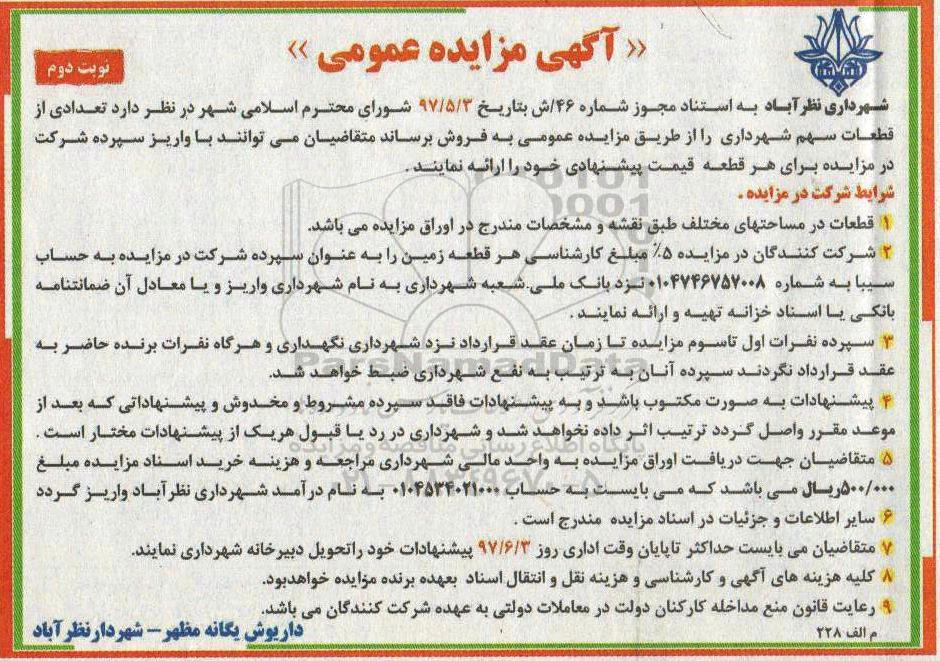 « آگهی مزایده عمومی »
نوبت دوم
شهرداری نظرآباد به استناد مجوز شماره ۴۶/ش بتاریخ ۹۷/۵/۳ شورای محترم اسلامی شهر در نظر دارد تعدادی از
قطعات سهم شهرداری را از طریق مزایده عمومی به فروش برساند متقاضیان می توانند با واریز سپرده شرکت
در مزایده برای هر قطعه قیمت پیشنهادی خود را ارائه نمایند.
شرایط شرکت در مزایده.
۱ قطعات در مساحتهای مختلف طبق نقشه و مشخصات مندرج در اوراق مزایده می باشد.
۲ شرکت کنندگان در مزایده ۵٪ مبلغ کارشناسی هر قطعه زمین را به عنوان سپرده شرکت در مزایده به حساب
سیبا به شماره ۰۱۰۴۷۴۶۷۵۷۰۰۸ نزد بانک ملی شعبه شهرداری به نام شهرداری واریز و یا معادل آن ضمانتنامه
بانکی یا اسناد خزانه تهیه و ارائه نمایند.
۳ سپرده نفرات اول تاسوم مزایده تا زمان عقد قرارداد نزد شهرداری نگهداری و هرگاه نفرات برنده حاضر به
عقد قرارداد نگردند سپرده آنان به ترتیب به نفع شهرداری ضبط خواهد شد.
۴ پیشنهادات به صورت مکتوب باشد و به پیشنهادات فاقد سپرده مشروط و مخدوش و پیشنهاداتی که بعد از
موعد مقرر واصل گردد ترتیب اثر داده نخواهد شد و شهرداری در رد یا قبول هریک از پیشنهادات مختار است.
۵ متقاضیان جهت دریافت اوراق مزایده به واحد مالی شهرداری مراجعه و هزینه خرید اسناد مزایده مبلغ
۵۰۰/۰۰۰ریال می باشد که می بایست به حساب ۰۱۰۴۵۳۴۰۲۱۰۰۰ به نام درآمد شهرداری نظرآباد واریز گردد
۶ سایر اطلاعات و جزئیات در اسناد مزایده مندرج است.
۷ متقاضیان می بایست حداکثر تاپایان وقت اداری روز ۹۷/۶/۳ پیشنهادات خود راتحویل دبیرخانه شهرداری نمایند.
۸ کلیه هزینه های آگهی و کارشناسی و هزینه نقل و انتقال اسناد بعهده برنده مزایده خواهدبود.
۹ رعایت قانون منع مداخله کارکنان دولت در معاملات دولتی به عهده شرکت کنندگان می باشد.
م الف ۲۲۸
داریوش یگانه مظهر – شهردارنظرآباد
ParsNamadData